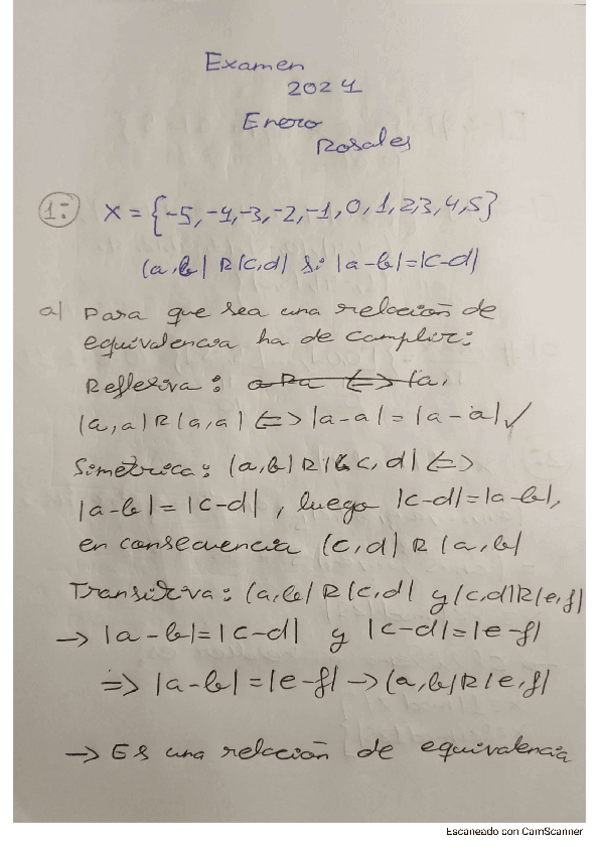 Examen
2024
Enero
Rosales
1: X = {-5, -4, -3, -2, -1, 0, 1, 2, 3, 4, 5}
(a, b) R (c, d) si |a-b| = |c-d|
a) Para que sea una relación de
equivalencia ha de cumplir:
Reflexiva: a R a <=> (a,
(a, a) R (a, a) <=> |a-a| = |a-a| ✓
Simétrica: (a, b) R (c, d) <=>
|a-b| = |c-d|, luego |c-d| = |a-b|,
en consecuencia (c, d) R (a, b)
Transitiva: (a, b) R (c, d) y (c, d) R (e, f)
→ |a-b| = |c-d| y |c-d| = |e-f|
=> |a-b| = |e-f| → (a, b) R (e, f)
→ Es una relación de equivalencia
Escaneado con CamScanner